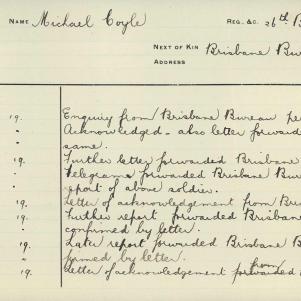 NAME Michael Coyle REG. &C. 26th B
NEXT OF KIN Brisbane Bu
ADDRESS
19. Enquiry from Brisbane Bureau pe
" Acknowledged - also letter forward
same.
19. Further letter forwarded Brisbane
" Telegrams forwarded Brisbane Bu
report of above soldier.
" Letter of acknowledgement from Bris
19. Further report forwarded Brisban
confirmed by letter.
19. Later report forwarded Brisbane B
firmed by letter.
19. Letter of acknowledgement from forwarded